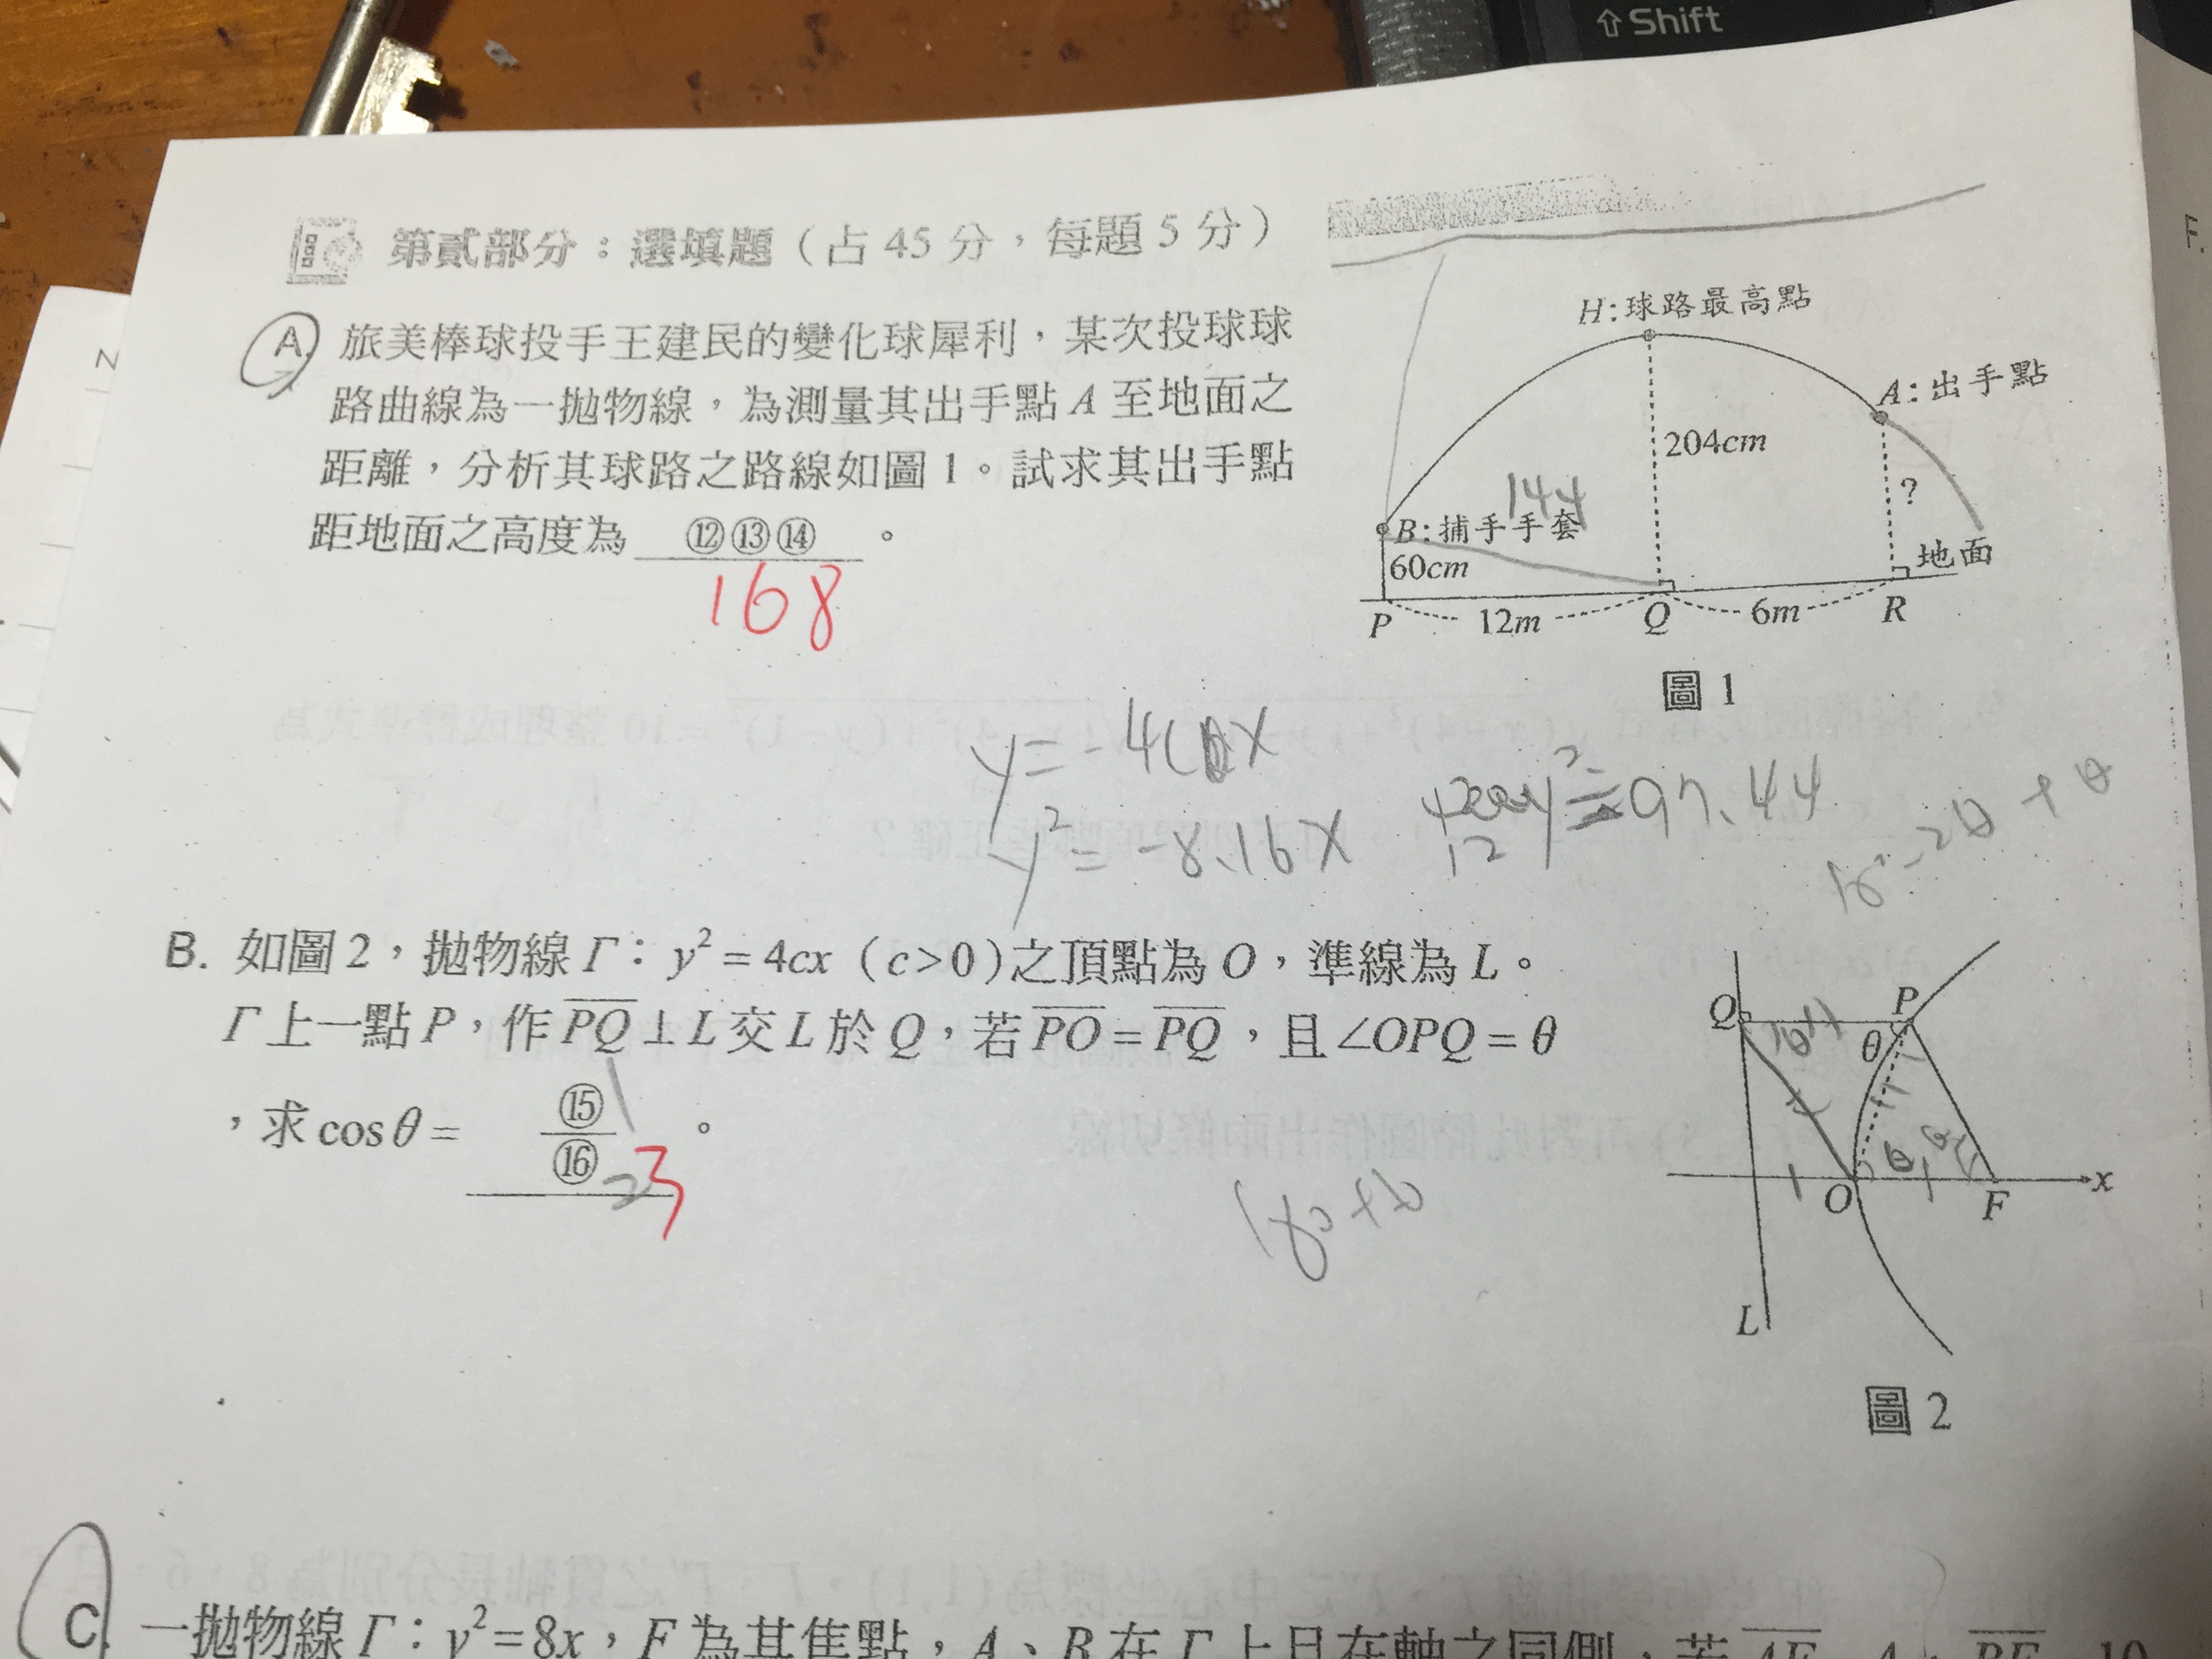 ⇧ Shift
第貳部分：選填題（占 45 分，每題 5 分）
A. 旅美棒球投手王建民的變化球犀利，某次投球球
路曲線為一拋物線，為測量其出手點 A 至地面之
距離，分析其球路之路線如圖 1。試求其出手點
距地面之高度為 ⑫⑬⑭ 。
168
H:球路最高點
A:出手點
204cm
144
?
B:捕手手套
60cm
地面
P 12m Q 6m R
圖 1
y² = -8.16x
97.44
B. 如圖 2，拋物線 Γ：y² = 4cx（c>0）之頂點為 O，準線為 L。
Γ 上一點 P，作 PQ⊥L 交 L 於 Q，若 PO = PQ，且∠OPQ = θ
，求 cosθ = ⑮/⑯ 。
1
2 3
180+θ
Q P
θ
θ
O F x
L
圖 2
C. 一拋物線 Γ：y²=8x，F 為其焦點，A、B 在 Γ 上且在軸之同側，若
N
F.